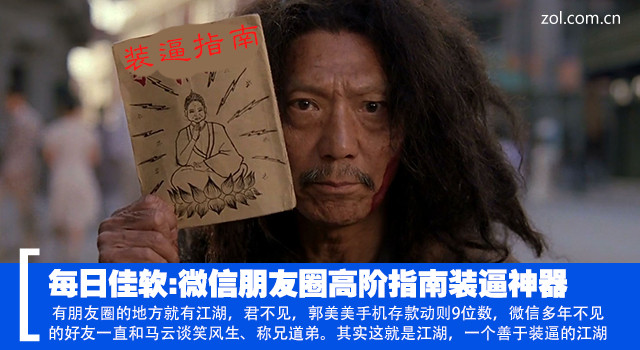 zol.com.cn
装逼指南
每日佳软:微信朋友圈高阶指南装逼神器
有朋友圈的地方就有江湖，君不见，郭美美手机存款动则9位数，微信多年不见
的好友一直和马云谈笑风生、称兄道弟。其实这就是江湖，一个善于装逼的江湖